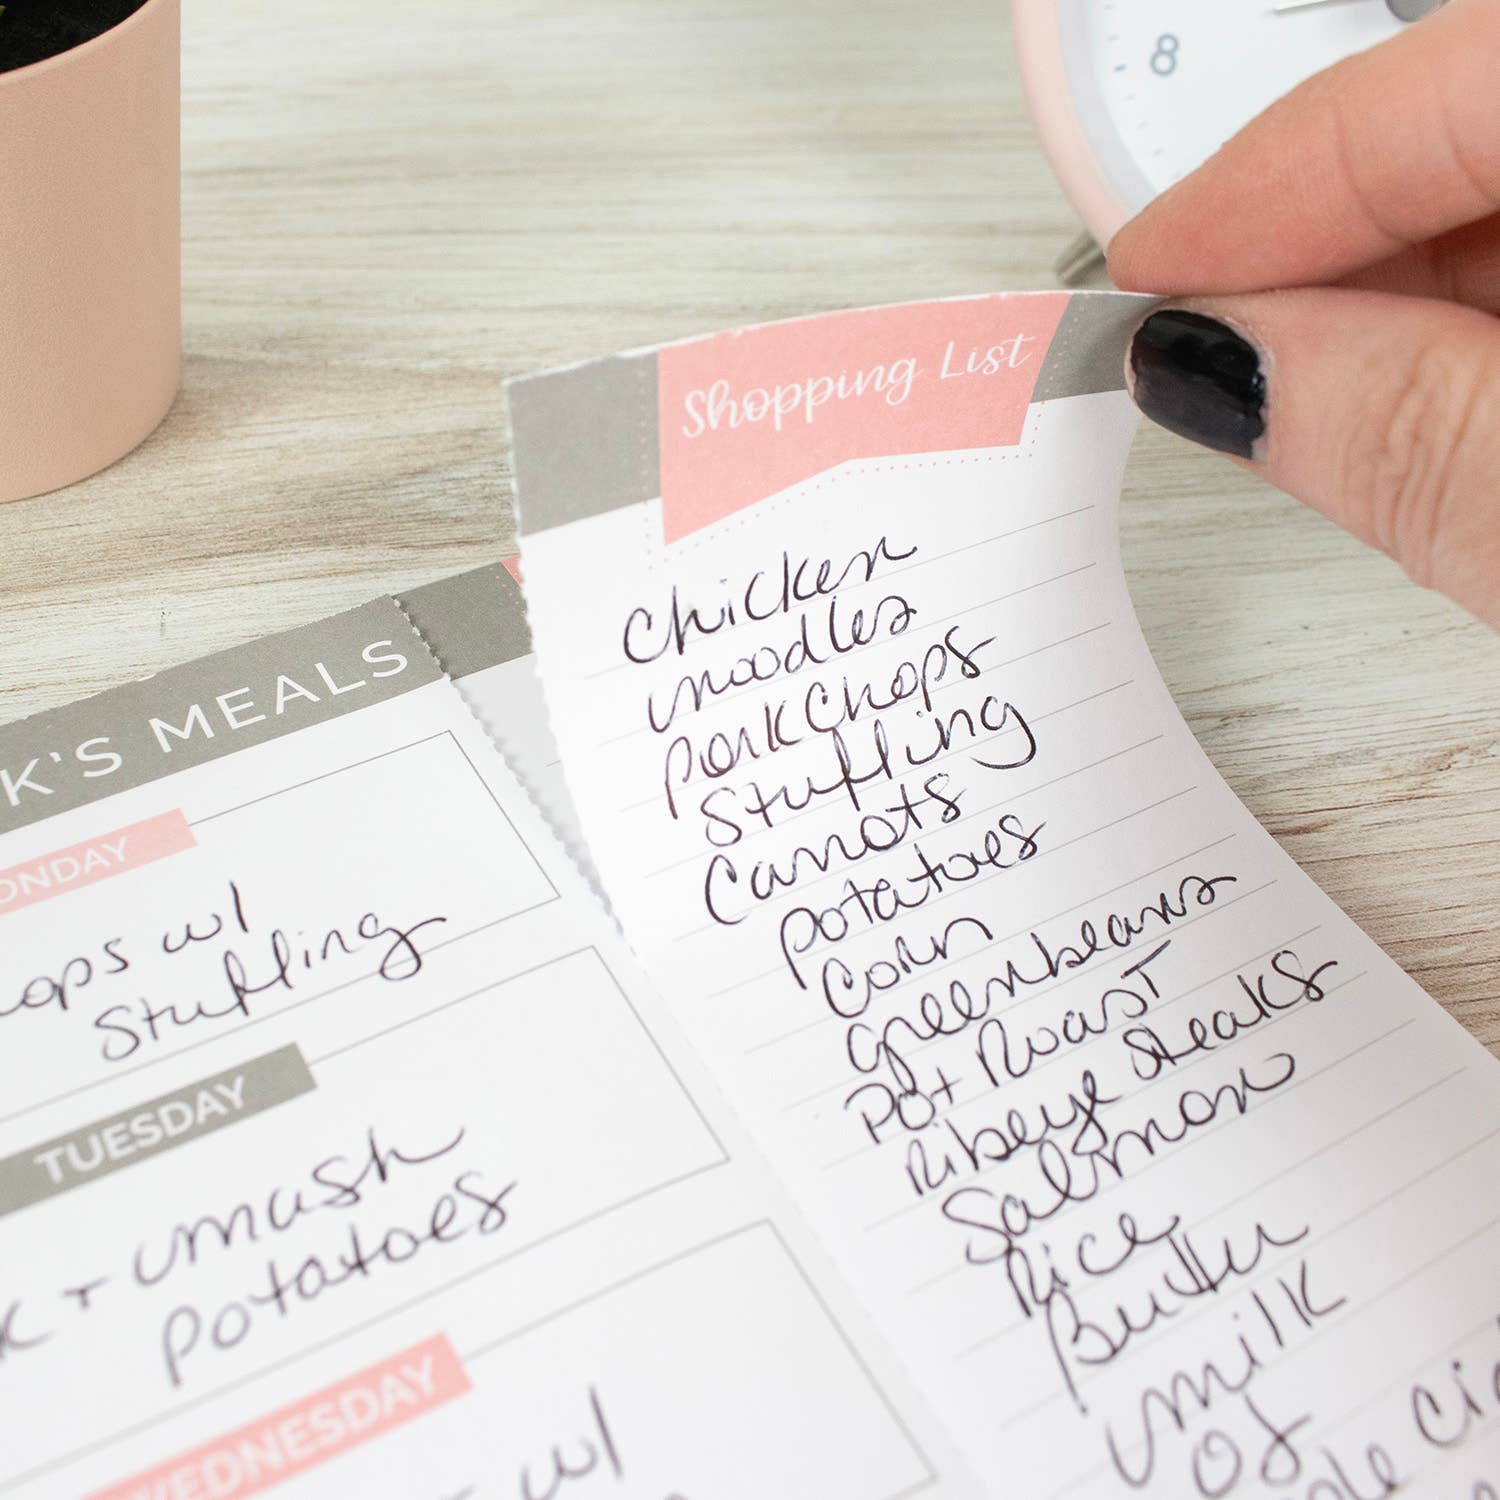 8
Shopping List
Chicken
noodles
PorkChops
Stuffing
Carrots
potatoes
Corn
greenbeans
Pot Roast
Ribeye Steaks
Salmon
Rice
Butter
milk
OJ
K'S MEALS
ONDAY
ops w/
Stuffing
TUESDAY
K + mash
potatoes
WEDNESDAY
w/